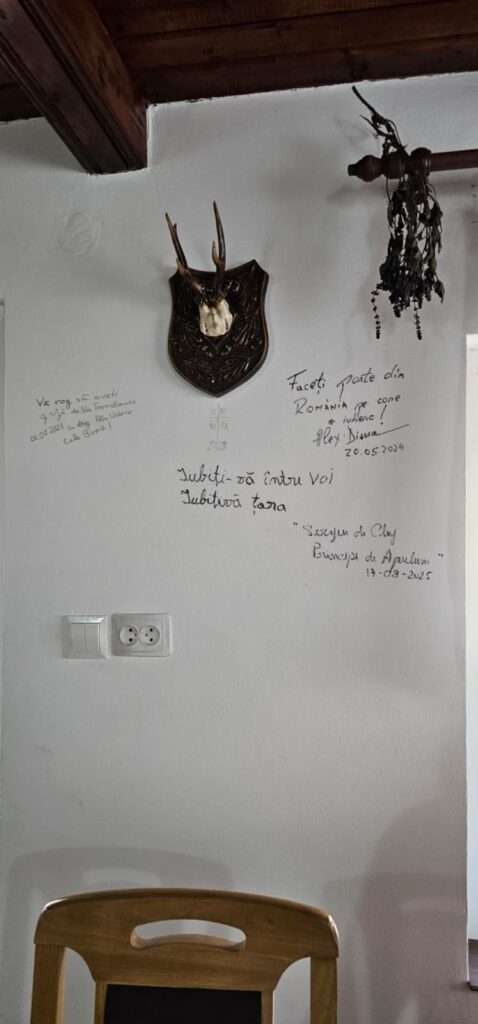 Vă rog să aveți
grijă de Via Transilvanica
01.07.2023 cu drag
Cale Bună!
Faceți parte din
ROMÂNIA pe care
o iubesc!
Alex Dima
20.05.2024
Iubiți-vă între voi
Iubițivă țara
"Sergiu de Cluj
Principe de Apulum"
17-08-2025